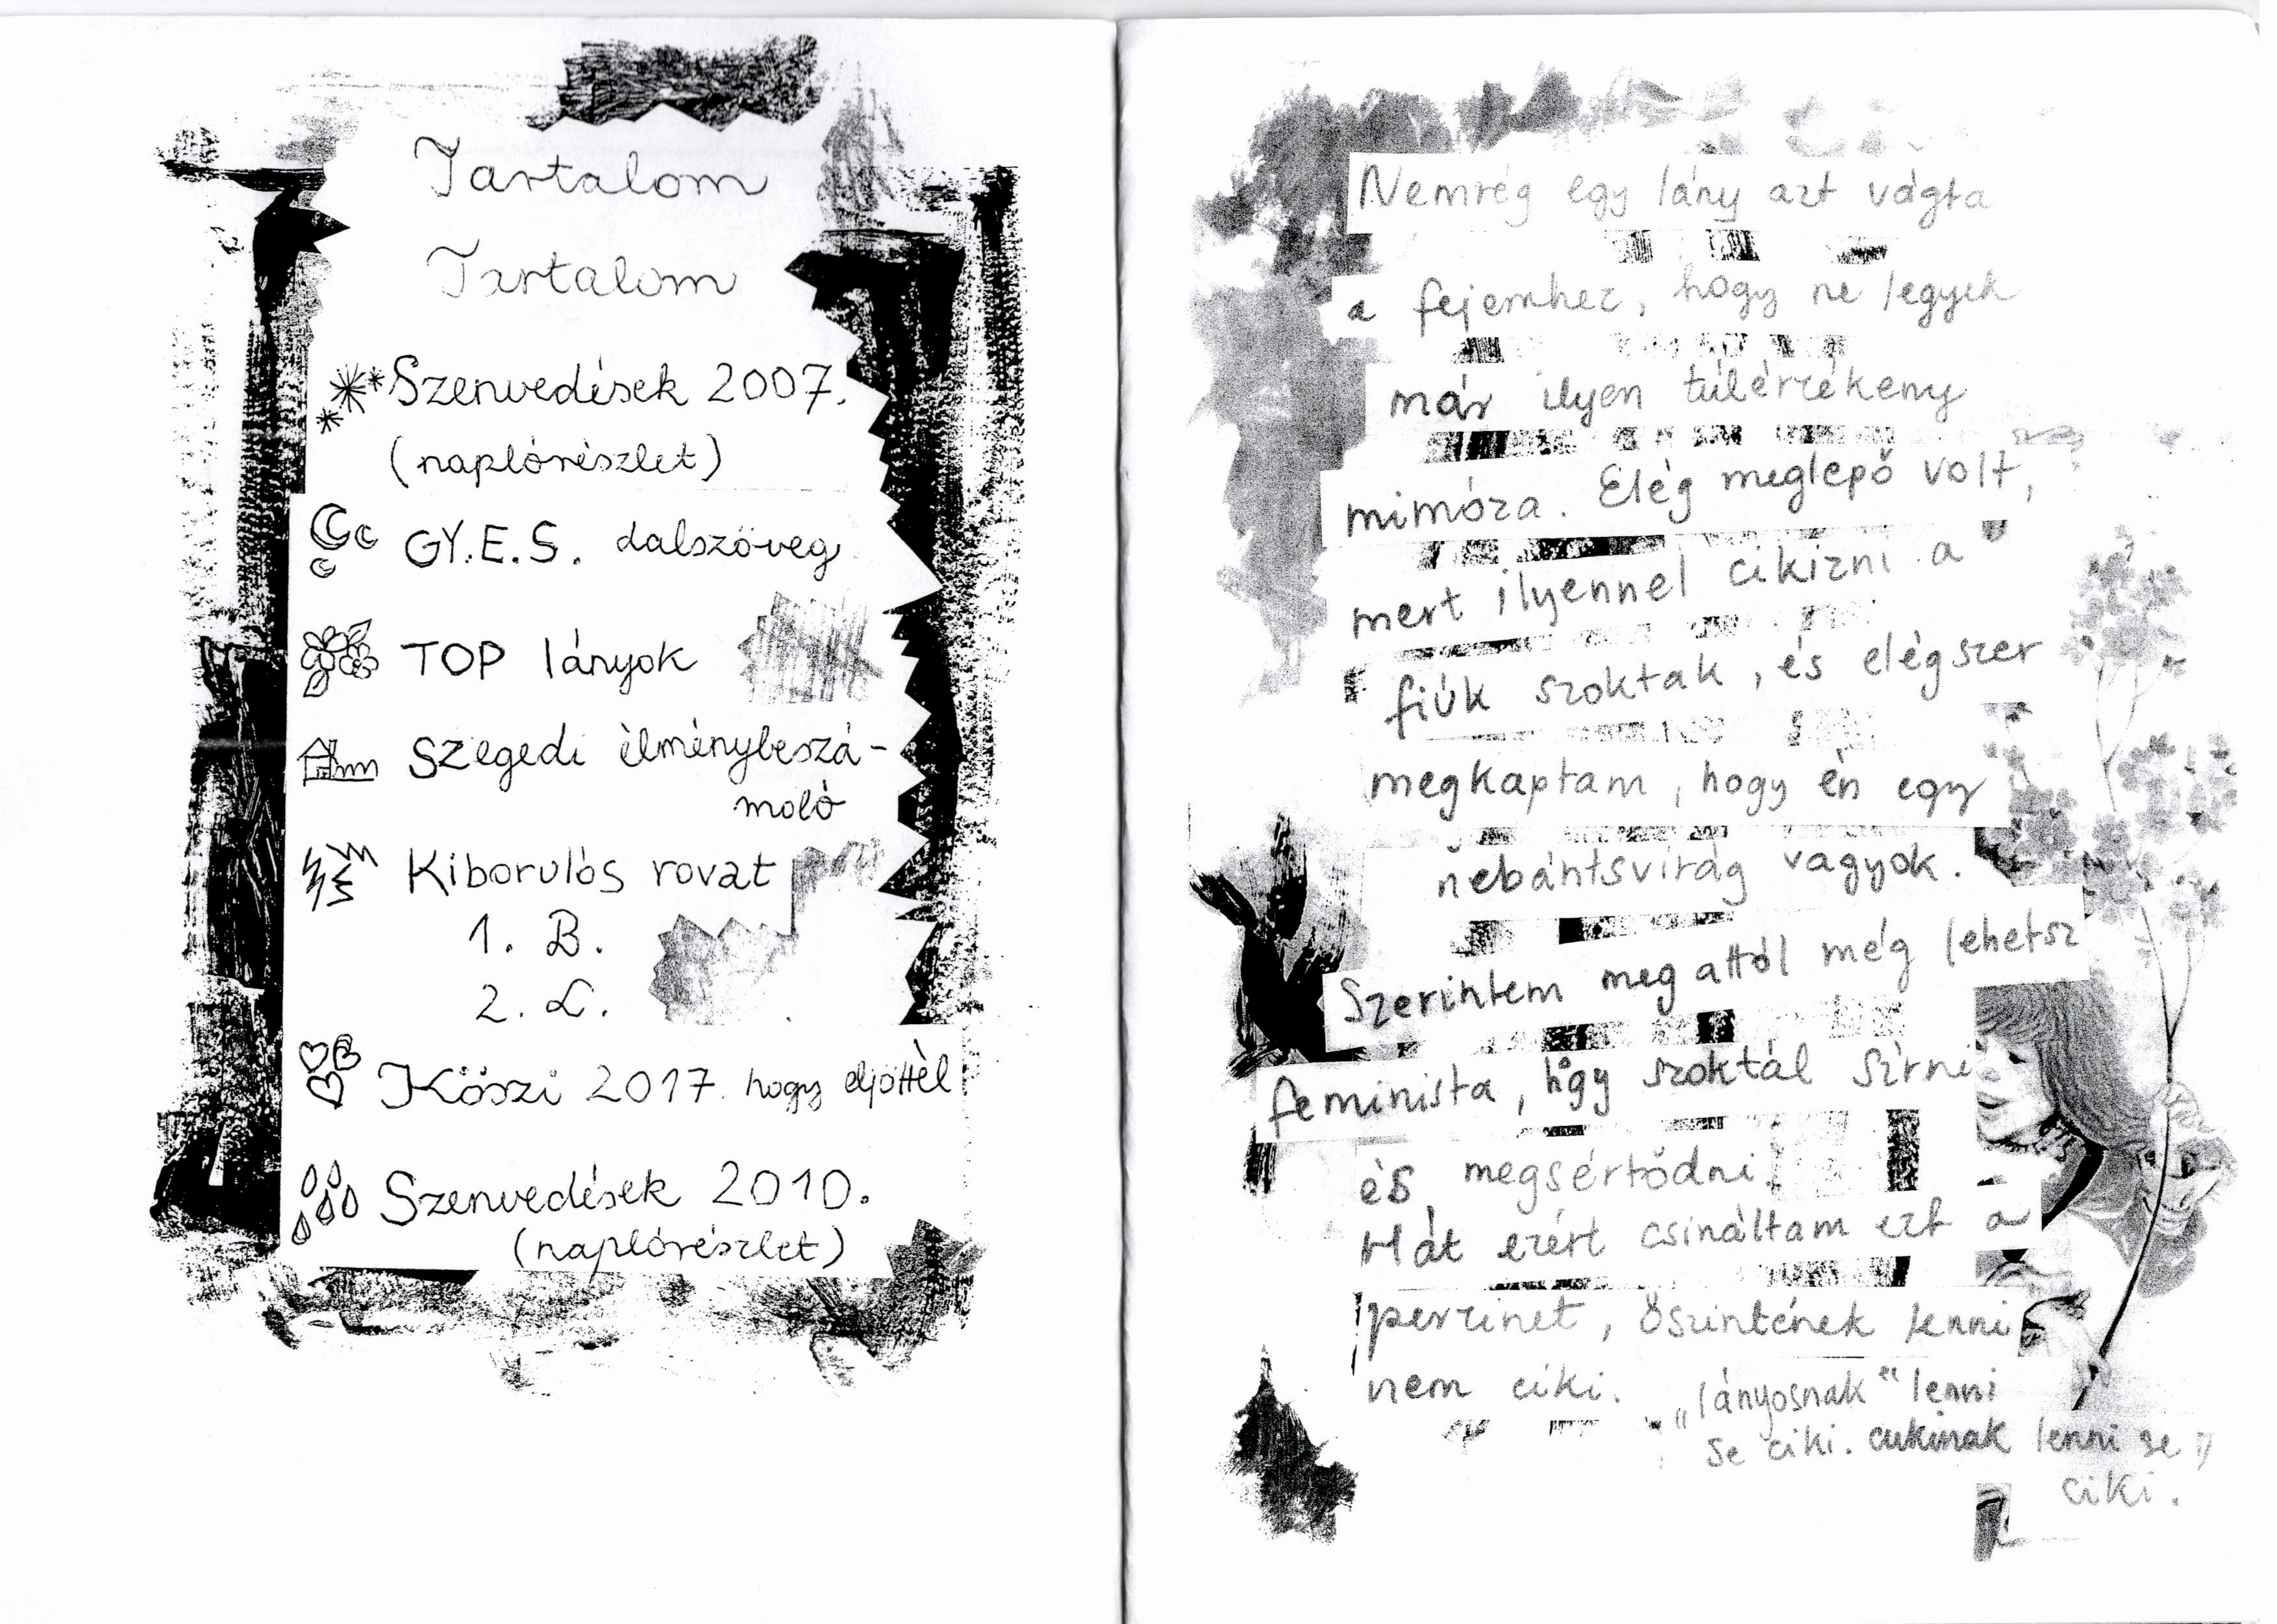 Tartalom
Tartalom
Szenvedések 2007.
(naplórészlet)
GY.E.S. dalszöveg
TOP lányok
Szegedi élménybeszá-
moló
Kiborulós rovat
1. B.
2. L.
Köszi 2017. hogy eljöttél
Szenvedések 2010.
(naplórészlet)
Nemrég egy lány azt vágta
a fejemhez, hogy ne legyek
már ilyen túlérzékeny
mimóza. Elég meglepő volt,
mert ilyennel cikizni a
fiúk szoktak, és elégszer
megkaptam, hogy én egy
nebántsvirág vagyok.
Szerintem meg attól még lehetsz
feminista, hogy szoktál sírni
és megsértődni.
Hát ezért csináltam ezt a
perzinet, őszintének lenni
nem ciki. „lányosnak" lenni
se ciki. cukinak lenni se
ciki.